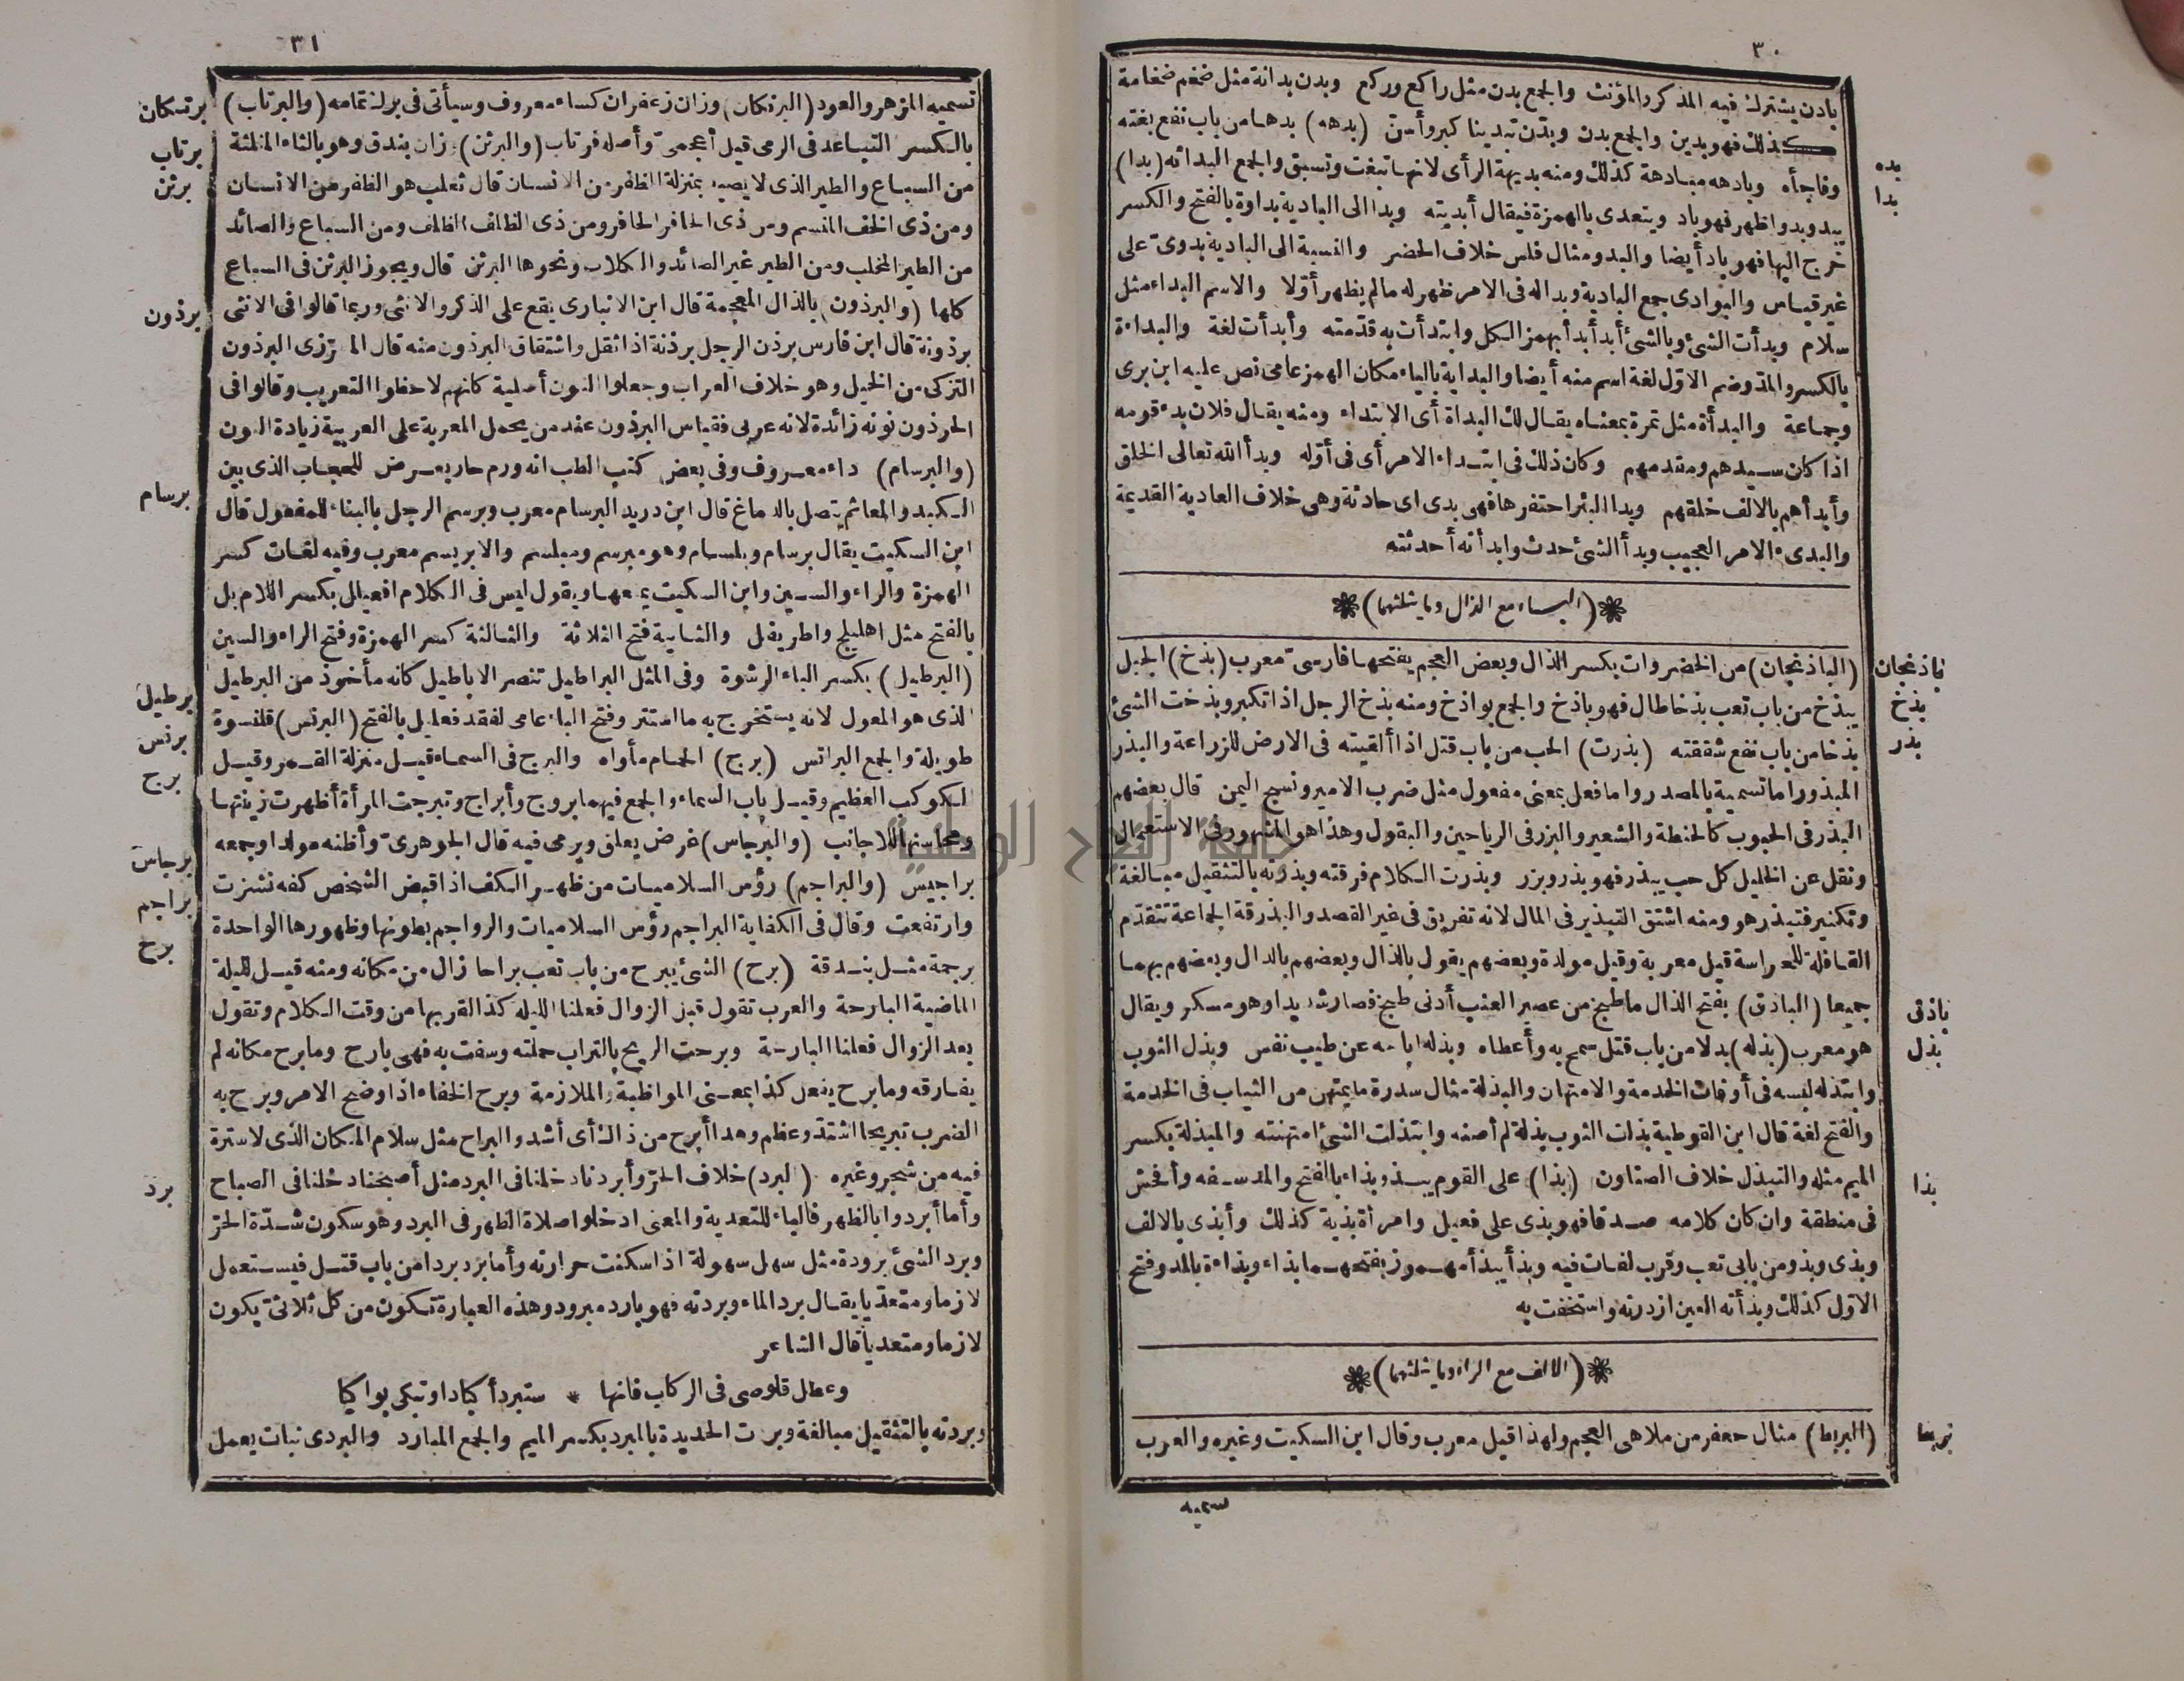 ٣٠
بادن يشترك فيه المذكر والمؤنث والجمع بدن مثل راكع وركع وبدن بدانة مثل ضخم ضخامة
كذلك فهو بدين والجمع بدن وبدّن تبدينا كبر وأسنّ (بدهه) بدها من باب نفع بغته
وفاجأه وبادهه مبادهة كذلك ومنه بديهة الرأى لانها تبغت وتسبق والجمع البدائه (بدا)
يبدو بدوا ظهر فهو باد ويتعدى بالهمزة فيقال أبديته وبدا الى البادية بداوة بالفتح والكسر
خرج اليها فهو باد أيضا والبدو مثال فلس خلاف الحضر والنسبة الى البادية بدوىّ على
غير قياس والبوادى جمع البادية وبدا له فى الامر ظهر له مالم يظهر أوّلا والاسم البداء مثل
سلام وبدأت الشئ وبالشئ أبدأ بدأ بهمز الكل وابتدأت به قدّمته وأبدأت لغة والبداءة
بالكسر والمدّ وضم الاوّل لغة اسم منه أيضا والبداية بالياء مكان الهمز عامى نص عليه ابن برى
وجماعة والبدأة مثل تمرة بمعناه يقال لك البدأة أى الابتداء ومنه يقال فلان بدء قومه
اذا كان سيدهم ومتقدمهم وكان ذلك فى ابتداء الامر أى فى أوّله وبدأ الله تعالى الخلق
وأبدأهم بالالف خلقهم وبدا البئر احتفرها فهى بدى اى حادثة وهى خلاف العادية القديمة
والبدىء الامر العجيب وبدأ الشئ حدث وابدأته أحدثته
(الباء مع الذال وما يثلثهما)
(الباذنجان) من الخضروات بكسر الذال وبعض العجم يفتحها فارسىّ معرب (بذخ) الجبل
يبذخ من باب تعب بذخا طال فهو باذخ والجمع بواذخ ومنه بذخ الرجل اذا تكبر وبذخت الشئ
بذخا من باب نفع شققته (بذرت) الحب من باب قتل اذا ألقيته فى الارض للزراعة والبذر
المبذور اما تسمية بالمصدر واما فعل بمعنى مفعول مثل ضرب الامير ونسج اليمن قال بعضهم
البذر فى الحبوب كالحنطة والشعير والبزر فى الرياحين والبقول وهذا هو المشهور فى الاستعمال
ونقل عن الخليل كل حب يبذر فهو بذر وبزر وبذرت الكلام فرقته وبذرته بالتثقيل مبالغة
وتكثير فتبذر هو ومنه اشتق التبذير فى المال لانه تفريق فى غير القصد والبذرقة الجماعة تتقدّم
القافلة للحراسة قيل معربة وقيل مولدة وبعضهم يقول بالذال وبعضهم بالدال وبعضهم بهما
جميعا (الباذق) بفتح الذال ما طبخ من عصير العنب أدنى طبخ فصار شديدا وهو مسكر ويقال
هو معرب (بذله) بذلا من باب قتل سمح به وأعطاه وبذله اباحه عن طيب نفس وبذل الثوب
وابتذله لبسه فى أوقات الخدمة والامتهان والبذلة مثال سدرة ما يمتهن من الثياب فى الخدمة
والفتح لغة قال ابن القوطية بذلت الثوب بذلة لم أصنه وابتذلت الشئ امتهنته والمبذلة بكسر
الميم مثله والتبذل خلاف التصاون (بذا) على القوم يبذو بذاء بالفتح والمد سفه وأفحش
فى منطقه وان كان كلامه صدقا فهو بذى على فعيل وامرأة بذية كذلك وأبذى بالالف
وبذى وبذو من بابى تعب وقرب لغات فيه وبذأ يبذأ مهموز بفتحهما بذاء وبذاءة بالمد وفتح
الاوّل كذلك وبذأته العين ازدرته واستخفت به
(الالف مع الراء وما يثلثهما)
(البربط) مثال جعفر من ملاهى العجم ولهذا قيل معرب وقال ابن السكيت وغيره والعرب
تسميه
بده
بدا
باذنجان
بذخ
بذر
باذق
بذل
بذا
بربط
٣١
تسميه المزهر والعود (البرتكان) وزان زعفران كساء معروف وسيأتى فى برك تمامه (والبرتاب)
بالكسر التباعد فى الرمى قيل أعجمىّ وأصله فرتاب (والبرثن) وزان بندق وهو بالثاء المثلثة
من السباع والطير الذى لا يصيد بمنزلة الظفر من الانسان قال ثعلب هو الظفر من الانسان
ومن ذى الخف المنسم ومن ذى الحافر الحافر ومن ذى الظلف الظلف ومن السباع والصائد
من الطير المخلب ومن الطير غير الصائد والكلاب ونحوها البرثن قال ويجوز البرثن فى السباع
كلها (والبرذون) بالذال المعجمة قال ابن الانبارى يقع على الذكر والانثى وربما قالوا فى الانثى
برذونة قال ابن فارس برذن الرجل برذنة اذا ثقل واشتقاق البرذون منه قال المطرّزى البرذون
التركى من الخيل وهو خلاف العراب وجعلوا النون أصلية كانهم لاحظوا التعريب وقالوا فى
الحرذون نونه زائدة لانه عربى فقياس البرذون عند من يحمل المعربة على العربية زيادة النون
(والبرسام) داء معروف وفى بعض كتب الطب انه ورم حار يعرض للحجاب الذى بين
الكبد والمعا ثم يتصل بالدماغ قال ابن دريد البرسام معرب وبرسم الرجل بالبناء للمفعول قال
ابن السكيت يقال برسام وبلسام وهو مبرسم ومبلسم والابريسم معرب وفيه لغات كسر
الهمزة والراء والسين وابن السكيت يمنعها ويقول ليس فى الكلام افعيلل بكسر اللام بل
بالفتح مثل اهليلج واطريفل والثانية فتح الثلاثة والثالثة كسر الهمزة وفتح الراء والسين
(البرطيل) بكسر الباء الرشوة وفى المثل البراطيل تنصر الاباطيل كانه مأخوذ من البرطيل
الذى هو المعول لانه يستخرج به ما استتر وفتح الباء عامى لفقد فعليل بالفتح (البرنس) قلنسوة
طويلة والجمع البرانس (برج) الحمام مأواه والبرج فى السماء قيل منزلة القمر وقيل
الكوكب العظيم وقيل باب السماء والجمع فيهما بروج وأبراج وتبرجت المرأة أظهرت زينتها
ومحاسنها للاجانب (والبرجاس) غرض يعلق ويرمى فيه قال الجوهرىّ وأظنه مولدا وجمعه
براجيس (والبراجم) رؤس السلاميات من ظهر الكف اذا قبض الشخص كفه نشزت
وارتفعت وقال فى الكفاية البراجم رؤس السلاميات والرواجم بطونها وظهورها الواحدة
برجمة مثل بندقة (برح) الشئ يبرح من باب تعب براحا زال من مكانه ومنه قيل لليلة
الماضية البارحة والعرب تقول قبل الزوال فعلنا الليلة كذا لقربها من وقت الكلام وتقول
بعد الزوال فعلنا البارحة وبرحت الريح بالتراب حملته وسفت به فهى بارح وما برح مكانه لم
يفارقه وما برح يفعل كذا بمعنى المواظبة والملازمة وبرح الخفاء اذا وضح الامر وبرح به
الضرب تبريحا اشتدّ وعظم وهذا أبرح من ذاك أى أشد والبراح مثل سلام المكان الذى لا سترة
فيه من شجر وغيره (البرد) خلاف الحرّ وأبردنا دخلنا فى البرد مثل أصبحنا دخلنا فى الصباح
وأما أبردوا بالظهر فالباء للتعدية والمعنى ادخلوا صلاة الظهر فى البرد وهو سكون شدّة الحرّ
وبرد الشئ برودة مثل سهل سهولة اذا سكنت حرارته وأما برد بردا من باب قتل فيستعمل
لازما ومتعدّيا يقال برد الماء وبردته فهو بارد مبرود وهذه العبارة تكون من كل ثلاثىّ يكون
لازما ومتعديا قال الشاعر
وعطل قلوصى فى الركاب فانها * ستبرد أكبادا وتبكى بواكيا
وبردته بالتثقيل مبالغة وبردت الحديدة بالمبرد بكسر الميم والجمع المبارد والبردى نبات يعمل
برتسكان
برتاب
برثن
برذون
برسام
برطيل
برنس
برج
برجاس
براجم
برح
برد
جامعة النجاح الوطنية